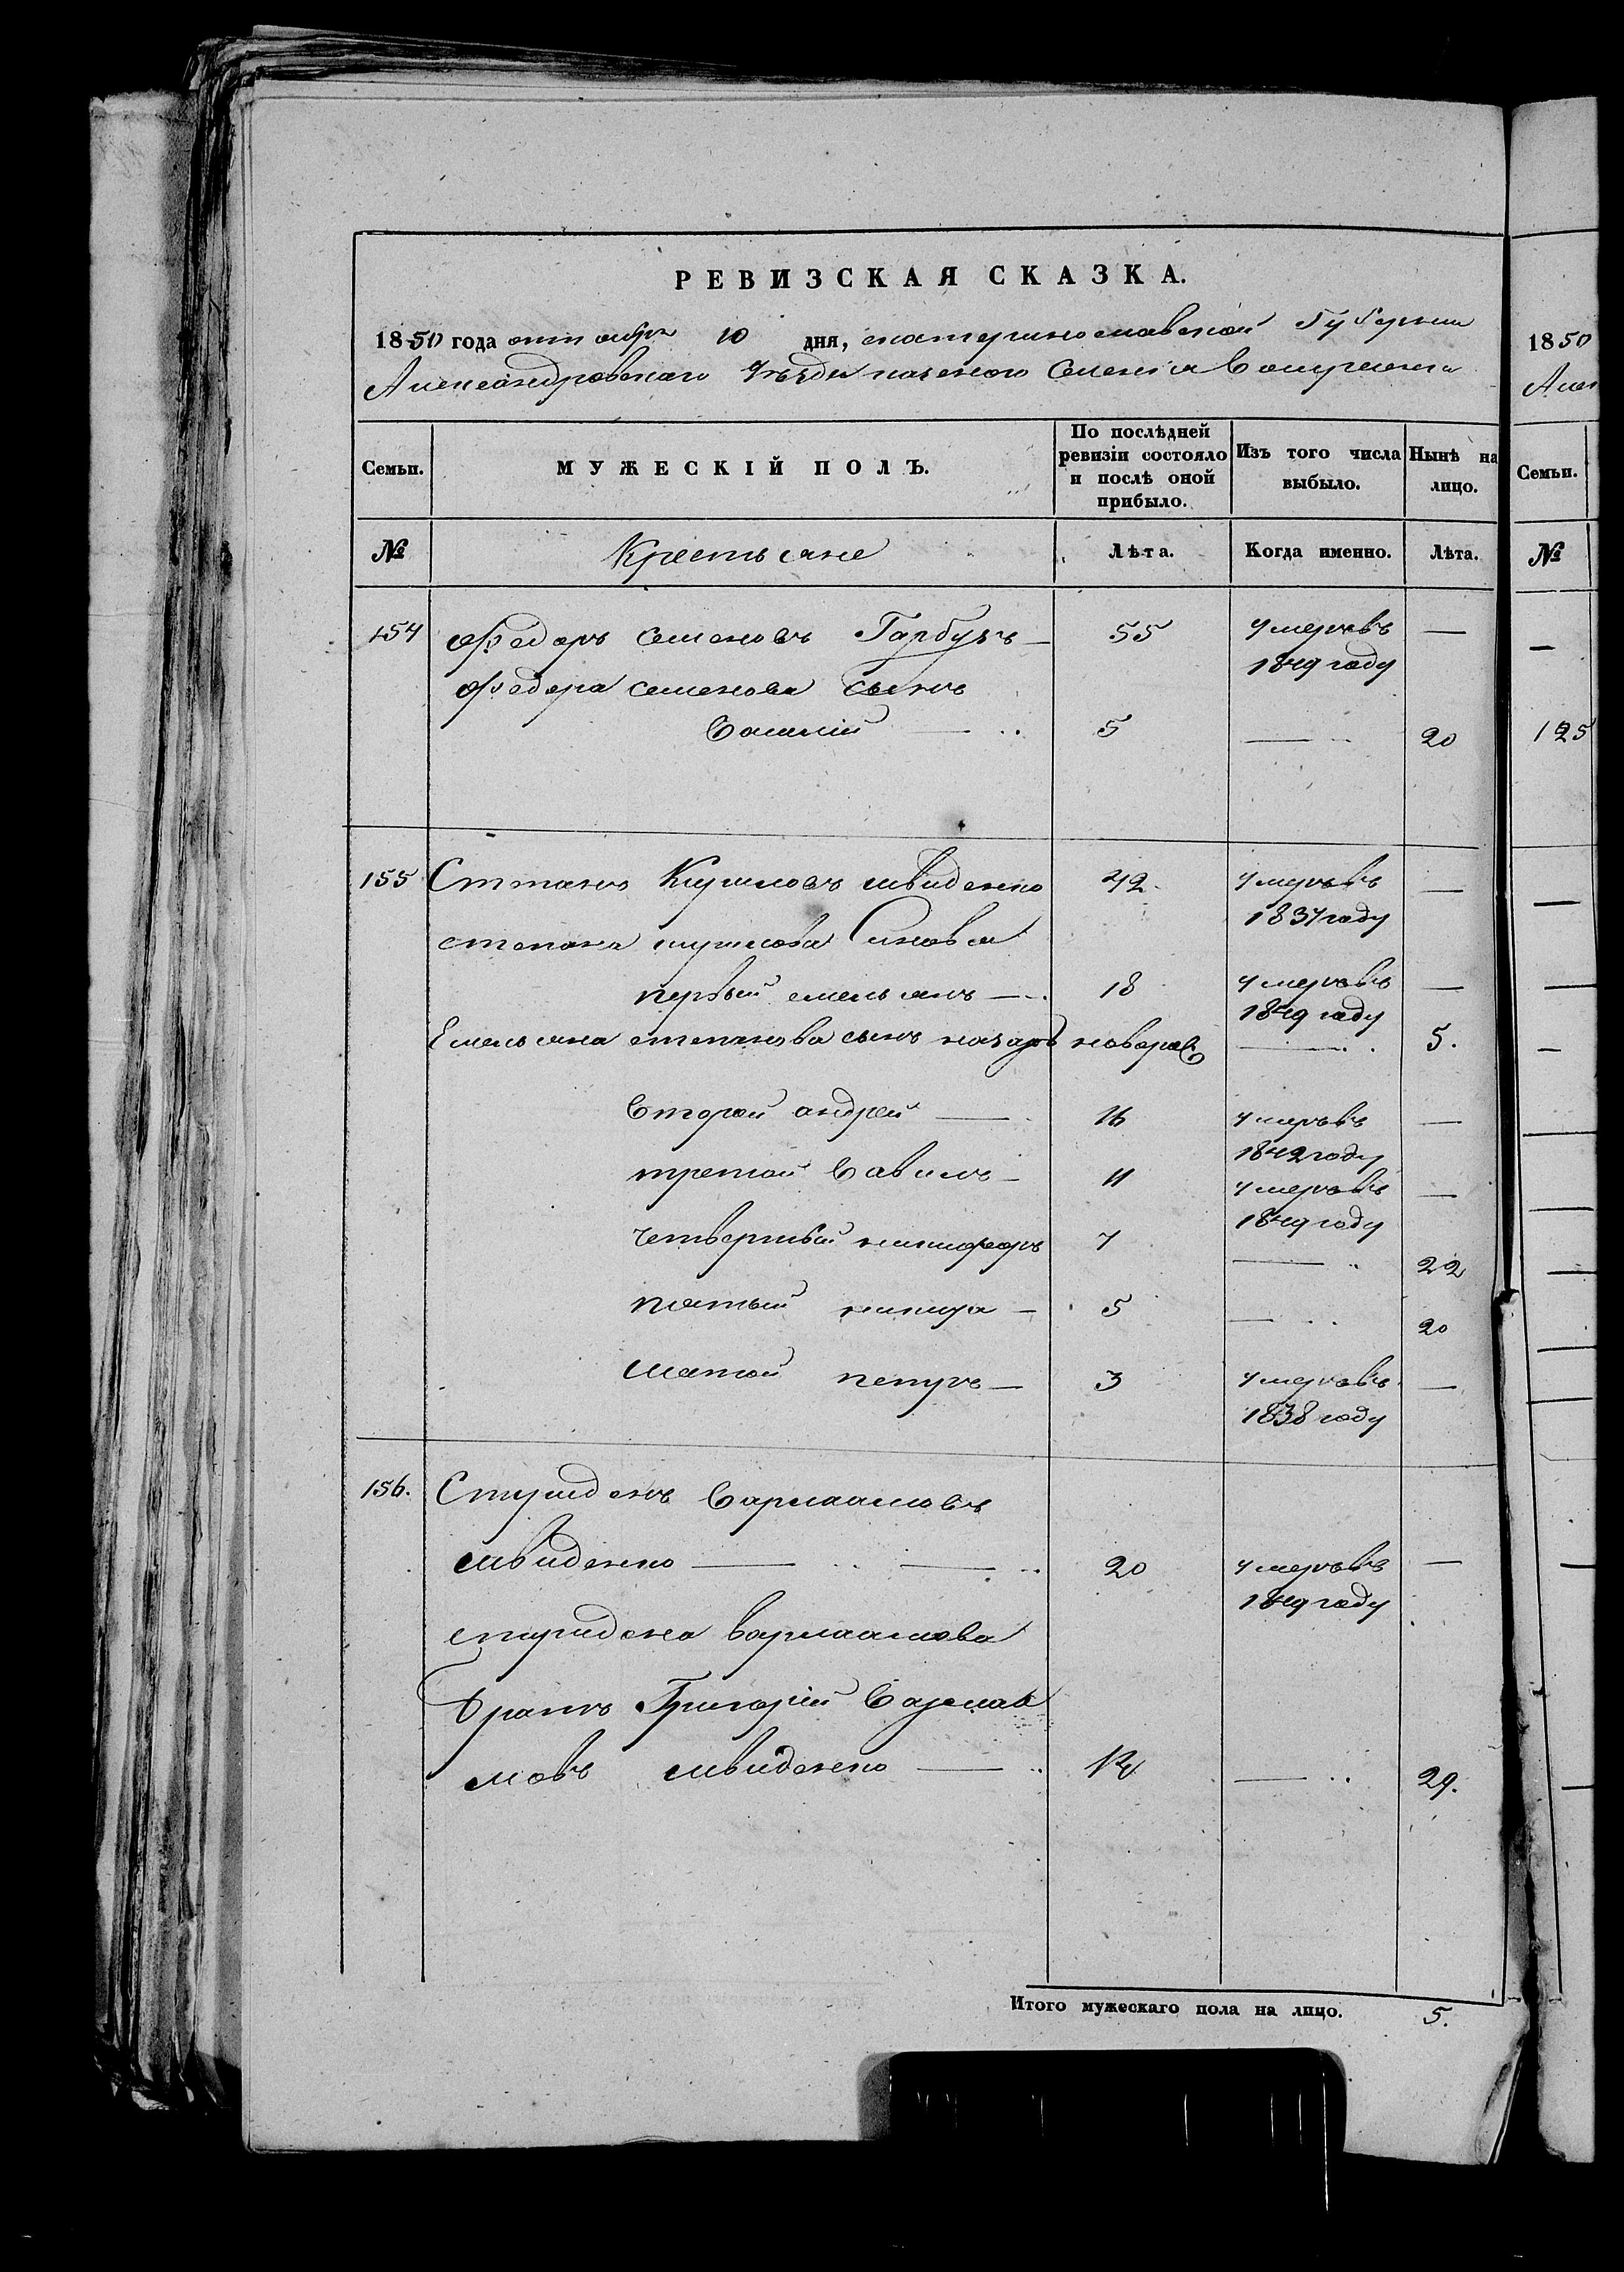 РЕВИЗСКАЯ СКАЗКА.
1850 года октоября 10 дня, екатеринославской Губернии
Александровскаго Уѣзда казенного Селенія Воскресенка
Семьи.
МУЖЕСКІЙ ПОЛЪ.
По послѣдней ревизіи состояло и послѣ оной прибыло.
Изъ того числа выбыло.
Нынѣ на лицо.
№
Крестьяне
Лѣта.
Когда именно.
Лѣта.
154 Федоръ Семеновъ Гарбузъ — 55 умеръ въ —
1849 году
Федора семенова сынъ
Василій — 5 — 20
155 Степанъ Кириловъ швиденко 42 умеръ въ —
1837 году
степана кирилова Сыновья
первый емельянъ — 18 умеръ въ —
1849 году
Емельяна степанова сынъ назаръ новорож — 5.
Второй андрей — 16 умеръ въ —
1842 году
третой Савилъ — 11 умеръ въ —
1849 году
четвертый никифоръ 7 — 22
пятый никита — 5 — 20
шатой петръ — 3 умеръ въ —
1838 году
156. Спиридонъ Варлаамовъ
швиденко — 20 умеръ въ —
1849 году
спиридона варлаамова
братъ Григорій Варлаа
мовъ швиденко — — 29.
Итого мужескаго пола на лицо. 5.
1850
Алек
Семьи.
№
125